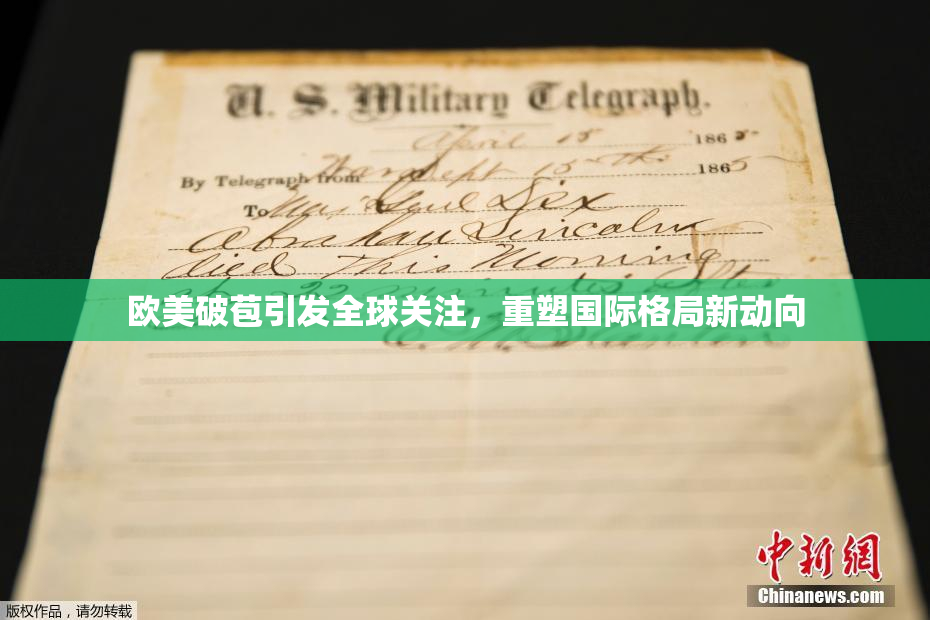 U. S. Military Telegraph.
April 15 1865
By Telegraph from War Dept 15th 1865
To Maj Genl Dix
Abraham Lincoln
died this Morning
at 22 minutes after
欧美破苞引发全球关注，重塑国际格局新动向
E. M. Stanton
中新网
Chinanews.com
版权作品，请勿转载